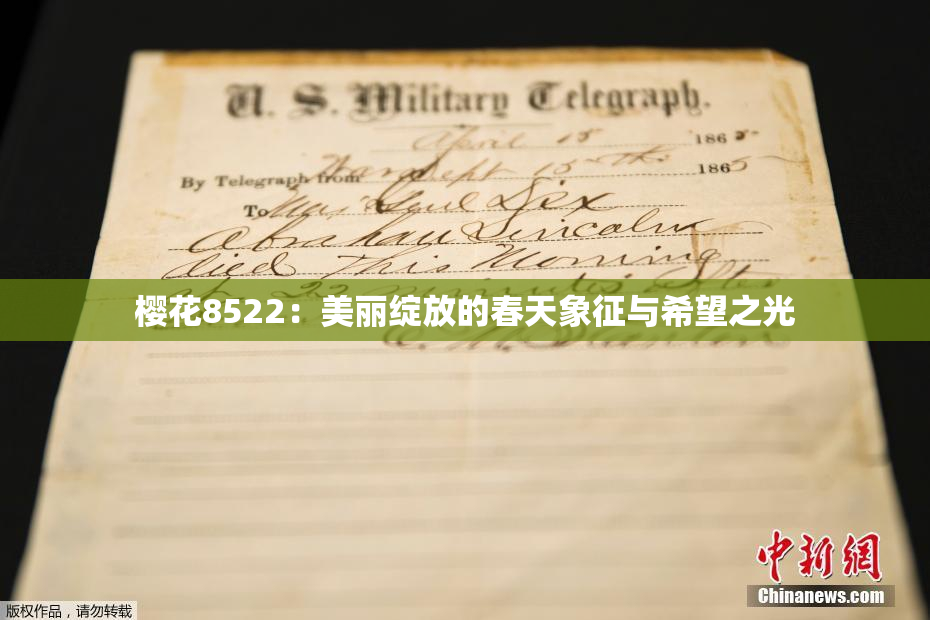 U. S. Military Telegraph.
April 15 1865
By Telegraph from War Dept 15th 1865
To Maj Genl Dix
Abraham Lincoln
died This Morning
at 22 minutes after
樱花8522：美丽绽放的春天象征与希望之光
E. M. Stanton
中新網
Chinanews.com
版权作品，请勿转载